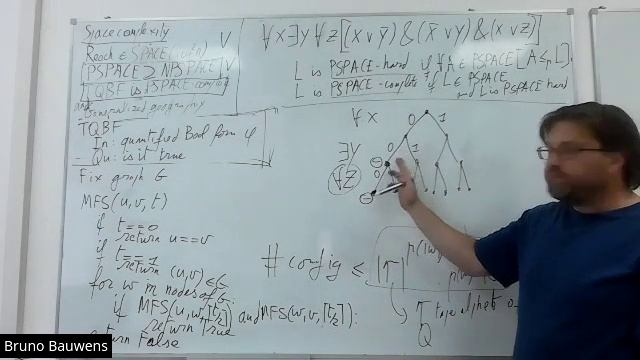 Space complexity
Reach ∈ SPACE(
PSPACE ⊇ NPSPACE
TQBF is PSPACE-complete
and Generalized geography
TQBF
In: quantified Bool form φ
Qu: is it true
Fix graph G
MFS(u,v,t)
if t==0
return u==v
if t==1
return (u,v)∈G
for w in nodes of G:
if MFS(u,w,⌈t/2⌉) and MFS(w,v,⌈t/2⌉):
return True
return False
∀X∃Y∀Z[(X∨Y̅)&(X̅∨Y)&(X∨Z)]
L is PSPACE-hard if ∀A∈PSPACE [A≤pL].
L is PSPACE-complete if L∈PSPACE
and L is PSPACE hard
∀X
0 1
∃Y
0 1
∀Z
0
# config ≤ |Γ|
Γ tape alphabet
Q
Bruno Bauwens